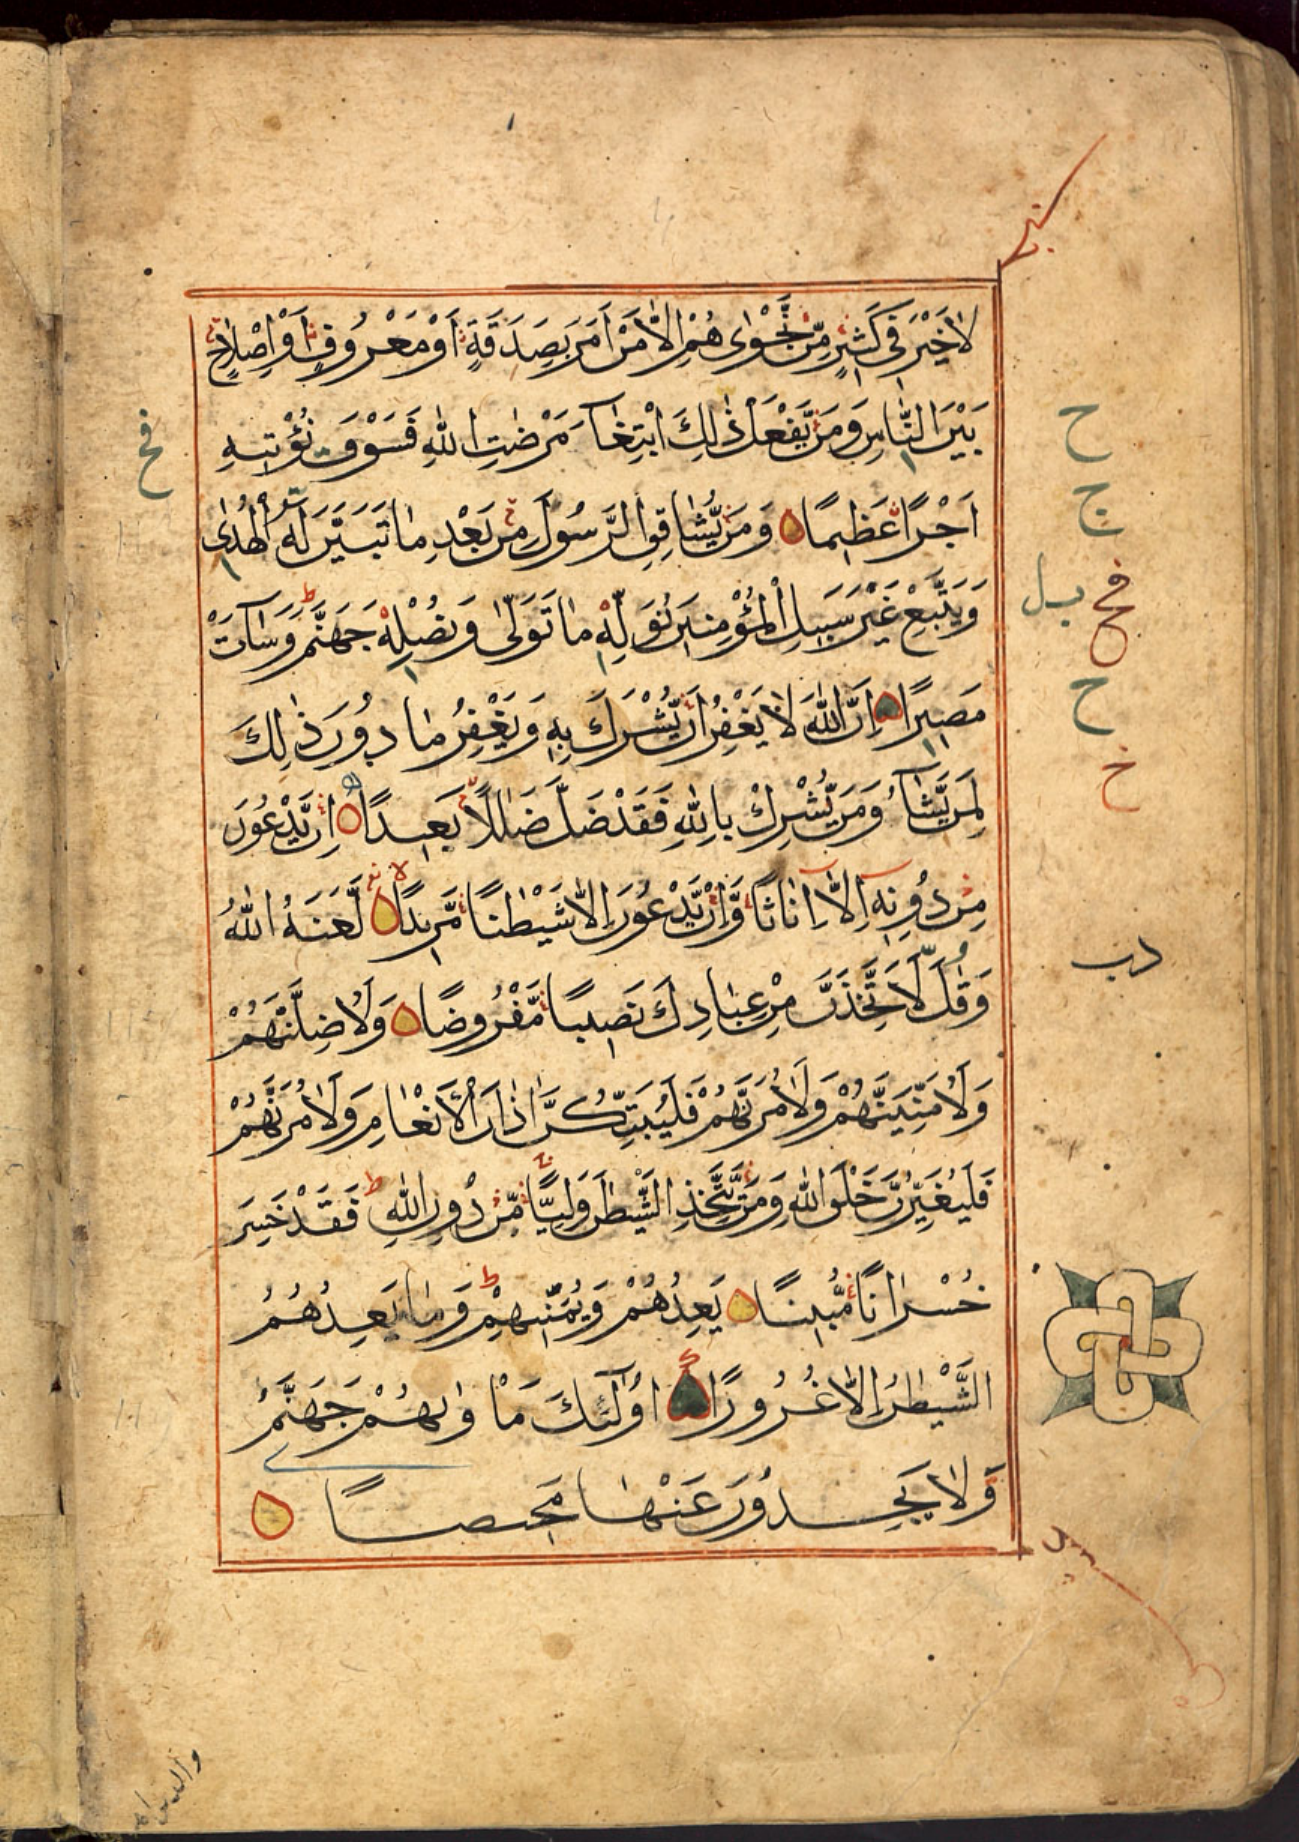 لَاخَيْرَ فِي كَثِيرٍ مِّن نَّجْوٰىهُمْ اِلَّا مَنْ اَمَرَ بِصَدَقَةٍ اَوْ مَعْرُوفٍ اَوْ اِصْلَاحٍ
بَيْنَ النَّاسِ وَمَن يَّفْعَلْ ذٰلِكَ ابْتِغَآءَ مَرْضَاتِ اللّٰهِ فَسَوْفَ نُؤْتِيهِ
اَجْرًا عَظِيمًا وَمَن يُّشَاقِقِ الرَّسُولَ مِن بَعْدِ مَا تَبَيَّنَ لَهُ الْهُدٰى
وَيَتَّبِعْ غَيْرَ سَبِيلِ الْمُؤْمِنِينَ نُوَلِّهِ مَا تَوَلّٰى وَنُصْلِهِ جَهَنَّمَ وَسَآءَتْ
مَصِيرًا اِنَّ اللّٰهَ لَا يَغْفِرُ اَن يُّشْرَكَ بِهِ وَيَغْفِرُ مَا دُونَ ذٰلِكَ
لِمَن يَّشَآءُ وَمَن يُّشْرِكْ بِاللّٰهِ فَقَدْ ضَلَّ ضَلٰلًا بَعِيدًا اِن يَّدْعُونَ
مِن دُونِهِ اِلَّا اِنَاثًا وَّاِن يَّدْعُونَ اِلَّا شَيْطٰنًا مَّرِيدًا لَّعَنَهُ اللّٰهُ
وَقَالَ لَاَتَّخِذَنَّ مِنْ عِبَادِكَ نَصِيبًا مَّفْرُوضًا وَلَاُضِلَّنَّهُمْ
وَلَاُمَنِّيَنَّهُمْ وَلَاٰمُرَنَّهُمْ فَلَيُبَتِّكُنَّ اٰذَانَ الْاَنْعَامِ وَلَاٰمُرَنَّهُمْ
فَلَيُغَيِّرُنَّ خَلْقَ اللّٰهِ وَمَن يَّتَّخِذِ الشَّيْطٰنَ وَلِيًّا مِّن دُونِ اللّٰهِ فَقَدْ خَسِرَ
خُسْرَانًا مُّبِينًا يَعِدُهُمْ وَيُمَنِّيهِمْ وَمَا يَعِدُهُمُ
الشَّيْطٰنُ اِلَّا غُرُورًا اُولٰٓئِكَ مَاْوٰىهُمْ جَهَنَّمُ
وَلَا يَجِدُونَ عَنْهَا مَحِيصًا
فخ
ح
ج
بل
فخ
ح
خ
دب